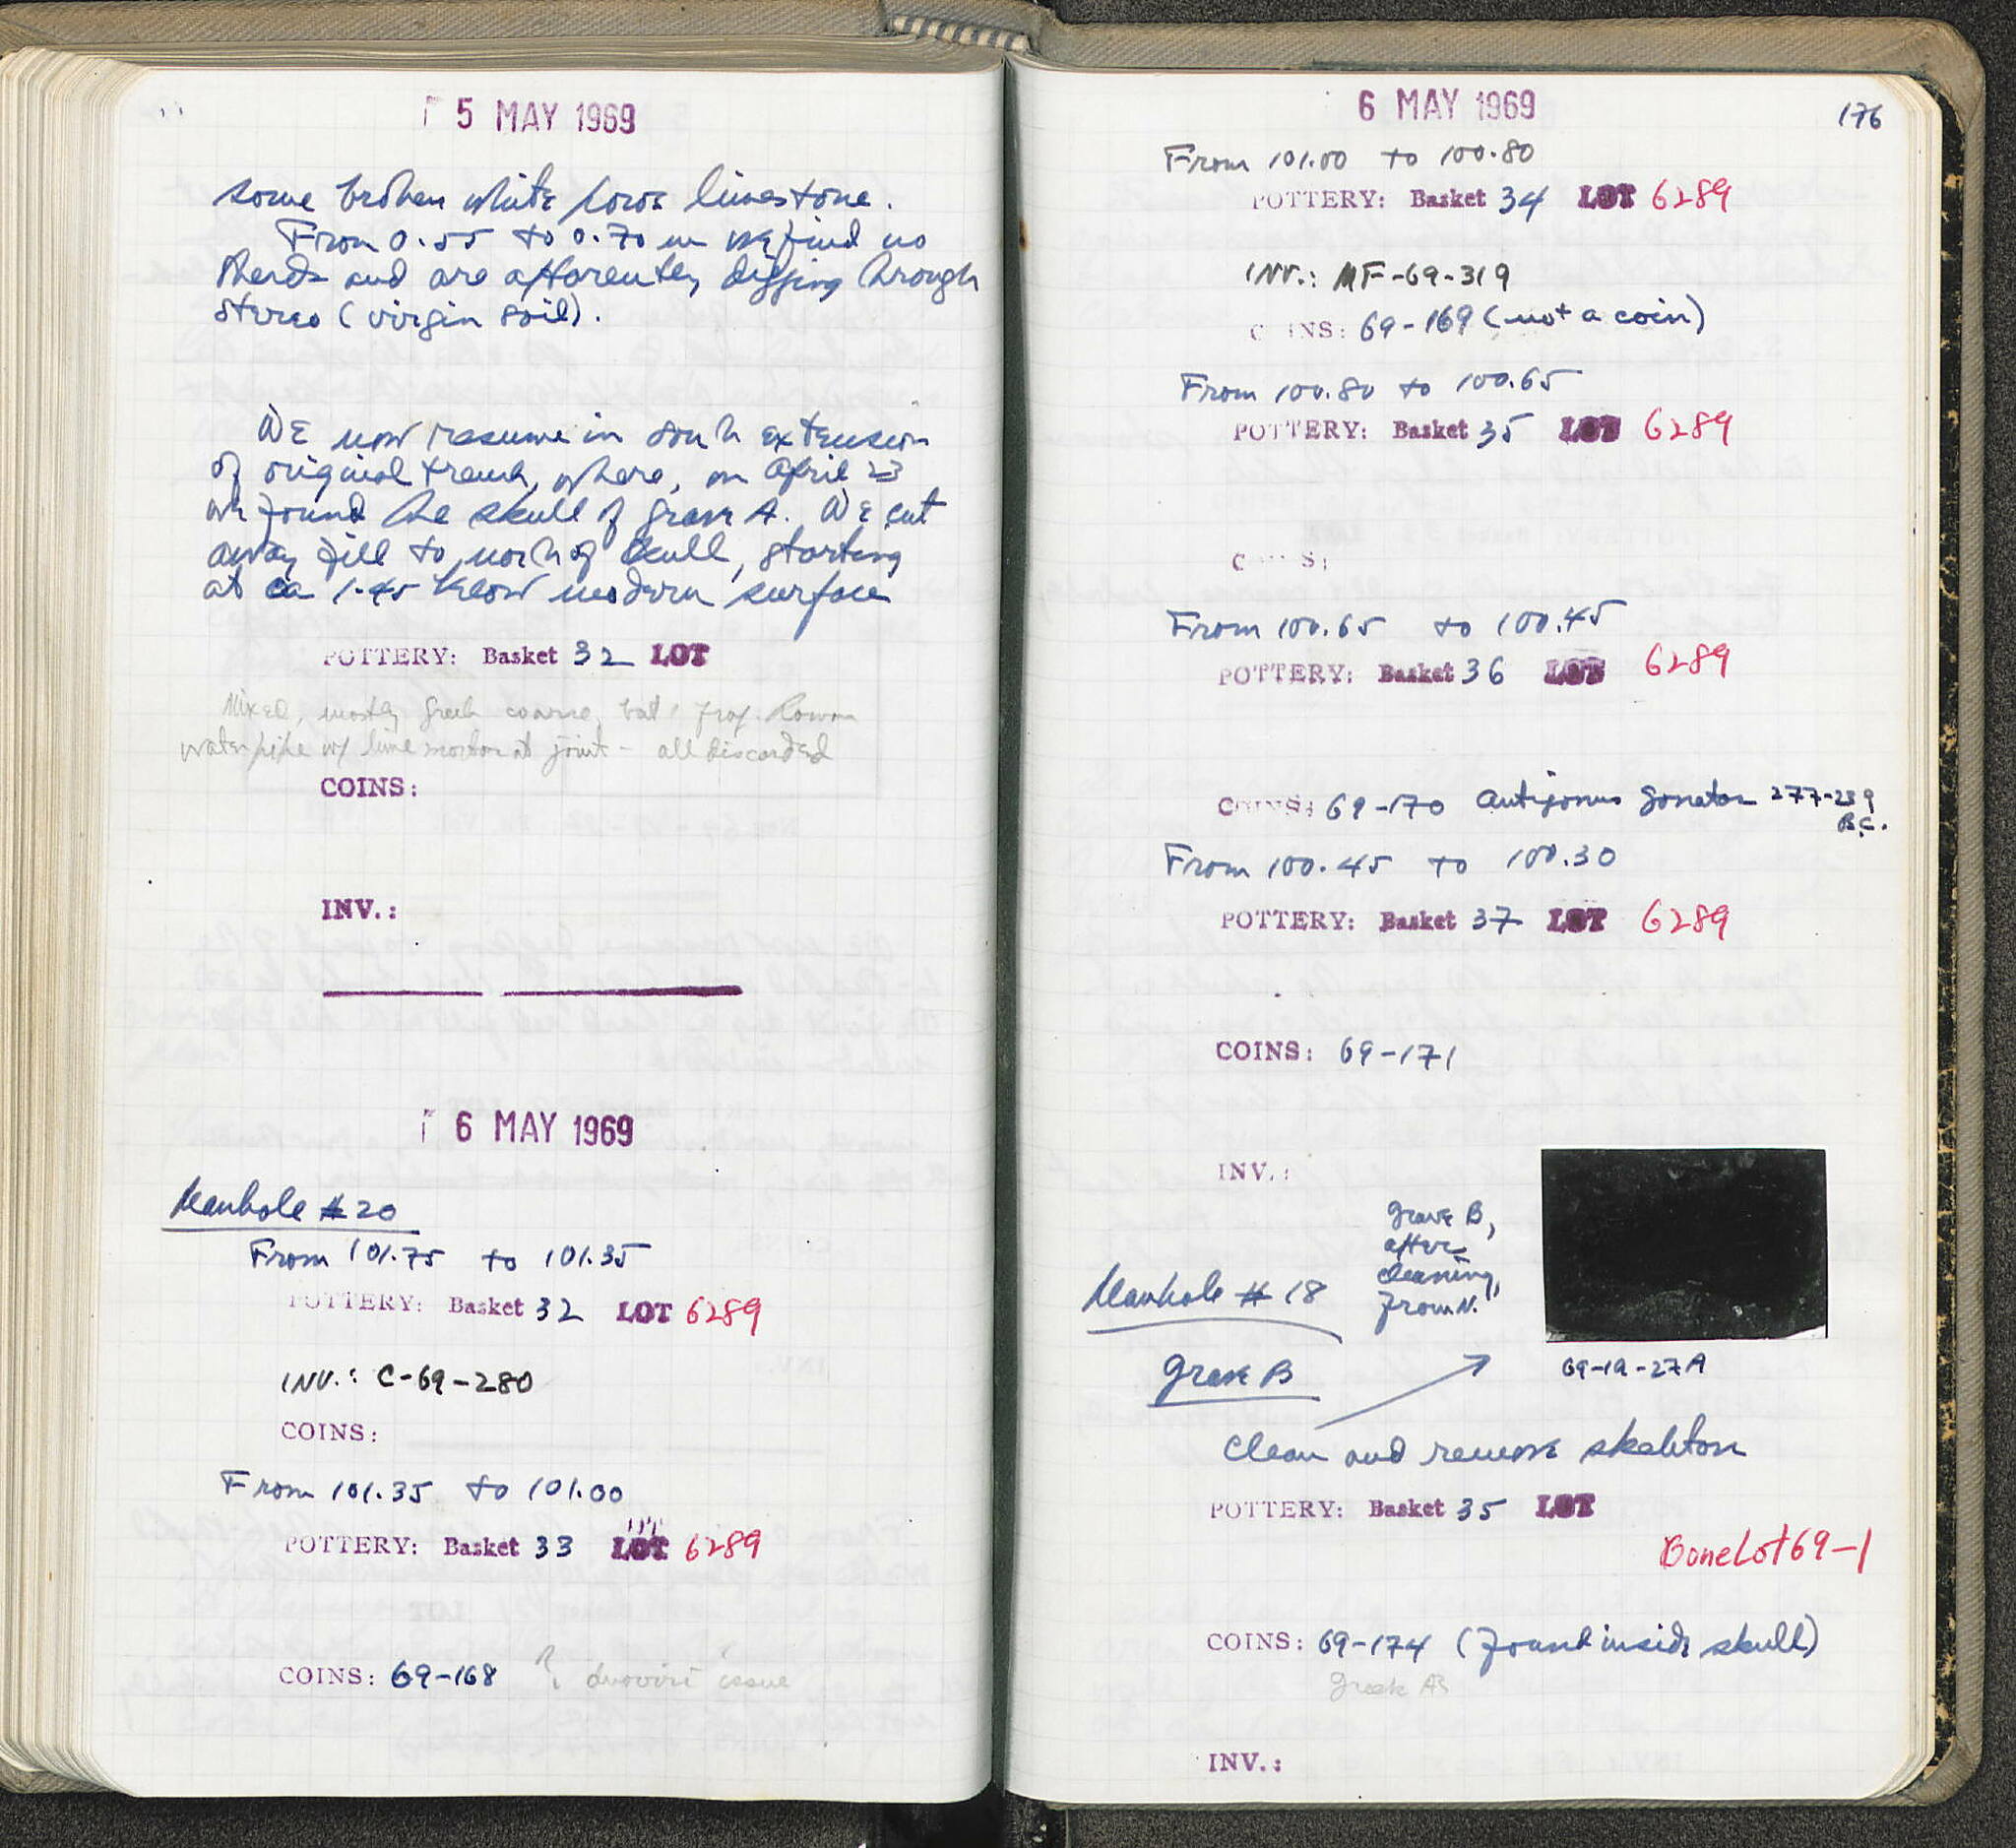 5 MAY 1969
some broken white poros limestone.
From 0.55 to 0.70 m we find no
sherds and are apparently digging through
stereo (virgin soil).
We now resume in south extension
of original trench, where, on April 23
we found the skull of grave A. We cut
away fill to north of skull, starting
at ca 1.45 below modern surface
POTTERY: Basket 32 LOT
Mixed, mostly Greek coarse, but 1 frag. Roman
water pipe w/ lime mortar at joint - all discarded
COINS:
INV.:
6 MAY 1969
Manhole #20
From 101.75 to 101.35
POTTERY: Basket 32 LOT 6289
INV.: C-69-280
COINS:
From 101.35 to 101.00
POTTERY: Basket 33 LOT 6289
COINS: 69-168 duoviri issue
6 MAY 1969
176
From 101.00 to 100.80
POTTERY: Basket 34 LOT 6289
INV.: MF-69-319
COINS: 69-169 (not a coin)
From 100.80 to 100.65
POTTERY: Basket 35 LOT 6289
C S:
From 100.65 to 100.45
POTTERY: Basket 36 LOT 6289
COINS: 69-170 Antigonus Gonatas 277-239
B.C.
From 100.45 to 100.30
POTTERY: Basket 37 LOT 6289
COINS: 69-171
INV.:
Grave B,
after
cleaning,
from N.
Manhole #18
Grave B
69-19-27A
Clean and remove skeleton
POTTERY: Basket 35 LOT
Bone Lot 69-1
COINS: 69-174 (found inside skull)
Greek Æ
INV.: